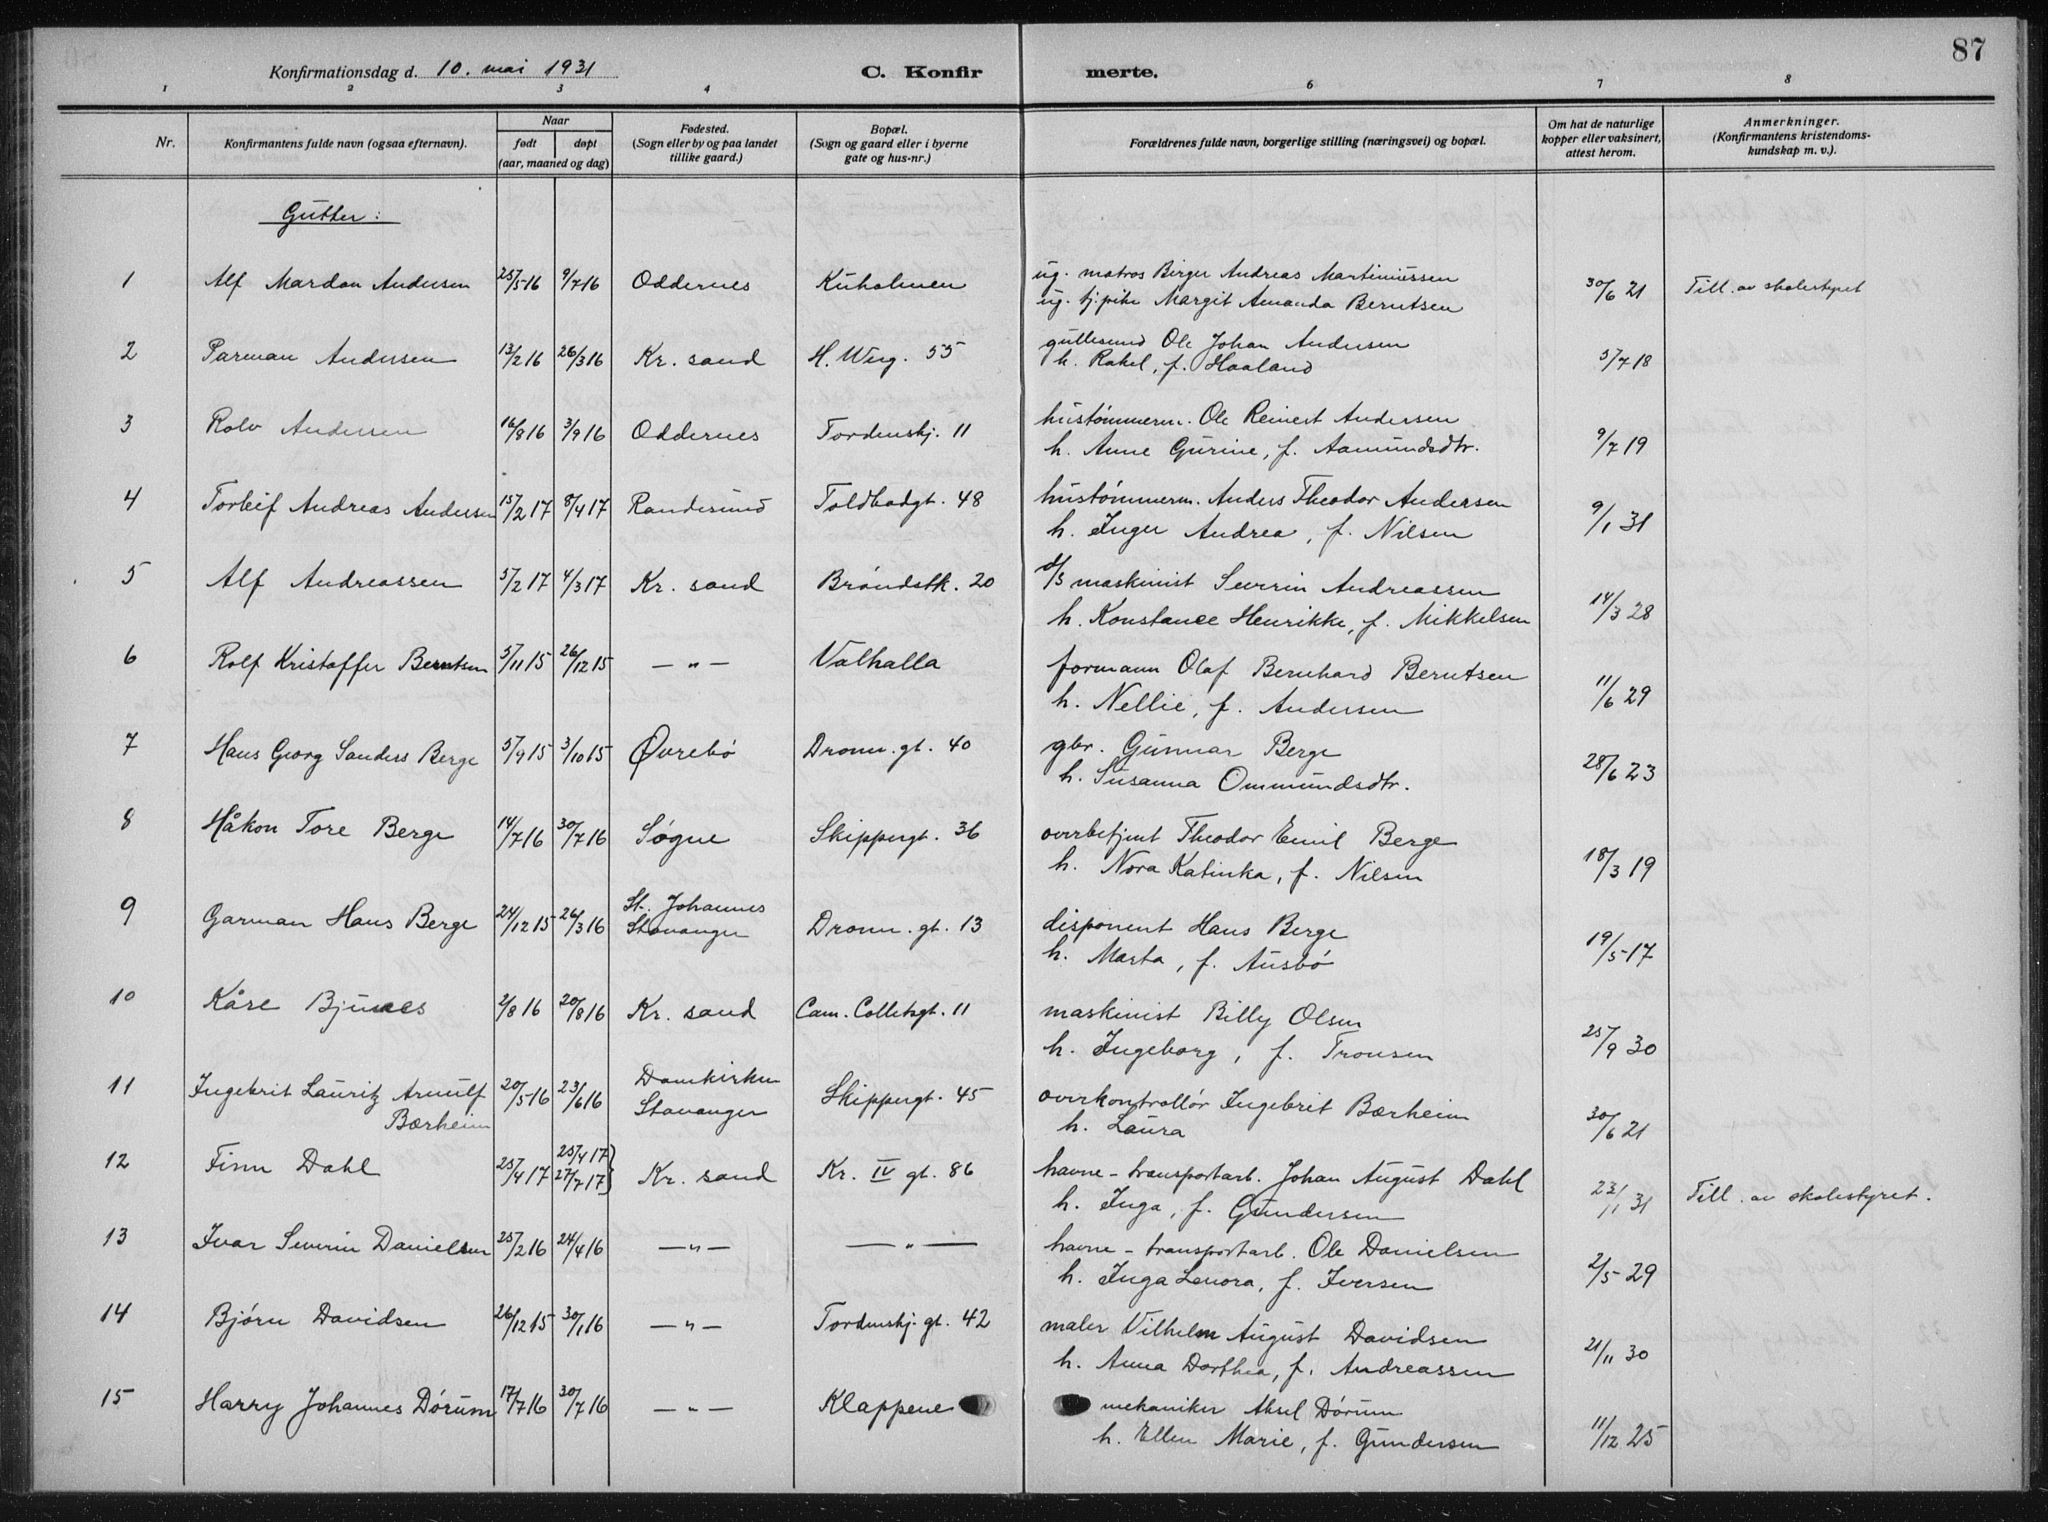 87
Konfirmationsdag d. 10. mai 1931 C. Konfir merte.
1 2 3 4 6 7 8
Nr. Konfirmantens fulde navn (ogsaa efternavn). Naar født døpt (aar, maaned og dag) Fødested. (Sogn eller by og paa landet tillike gaard.) Bopæl. (Sogn og gaard eller i byerne gate og hus-nr.) Forældrenes fulde navn, borgerlige stilling (næringsvei) og bopæl. Om hat de naturlige kopper eller vaksinert, attest herom. Anmerkninger. (Konfirmantens kristendoms- kundskap m. v.).
Gutter:
1 Alf Mardon Andersen 25/5 16 9/7 16 Oddernes Kuholmen ug. matros Birger Andreas Martiniussen 30/6 21 Till. av skolestyret
ug. tj.pike Margit Amanda Berntsen
2 Parman Andersen 13/2 16 26/3 16 Kr. sand H. Werg. 55 gullsmed Ole Johan Andersen 5/7 18
h. Rakel, f. Haaland
3 Rolv Andersen 16/8 16 3/9 16 Oddernes Tordenskj. 11 hustømmerm. Ole Reinert Andersen 9/7 19
h. Anne Gurine, f. Aamundsdtr.
4 Torleif Andreas Andersen 15/2 17 8/4 17 Randesund Toldbodgt. 48 hustømmerm. Anders Theodor Andersen 9/1 31
h. Inger Andrea, f. Nilsen
5 Alf Andreassen 5/2 17 4/3 17 Kr. sand Brøndstk. 20 d/s maskinist Severin Andreassen 14/3 28
h. Konstance Henrikke, f. Mikkelsen
6 Rolf Kristoffer Berntsen 5/11 15 26/12 15 — " — Valhalla formann Olaf Bernhard Berntsen 11/6 29
h. Nellie, f. Andersen
7 Hans Georg Sanders Berge 5/9 15 3/10 15 Øvrebø Dronn. gt. 40 gbr. Gunnar Berge 28/6 23
h. Susanna Ommundsdtr.
8 Håkon Tore Berge 14/7 16 30/7 16 Søgne Skippergt. 36 overbetjent Theodor Emil Berge 18/3 19
h. Nora Katinka, f. Nilsen
9 Garman Hans Berge 24/12 15 26/3 16 St. Johannes Stavanger Dronn. gt. 13 disponent Hans Berge 19/5 17
h. Marta, f. Ausbø
10 Kåre Bjunes 2/8 16 20/8 16 Kr. sand Cam. Colletsgt. 11 maskinist Billy Olsen 25/9 30
h. Ingeborg, f. Tronsen
11 Ingebrit Lauritz Arnulf 20/5 16 23/6 16 Domkirken Stavanger Skippergt. 45 overkontrollør Ingebrit Bærheim 30/6 21
Bærheim h. Laura
12 Finn Dahl 25/4 17 25/4 17) 27/7 17) Kr. sand Kr. IV gt. 86 havne-transportarb. Johan August Dahl 23/1 31 Till. av skolestyret.
h. Inga, f. Gundersen
13 Ivar Severin Danielsen 25/2 16 24/4 16 — " — — " — havne-transportarb. Ole Danielsen 2/5 29
h. Inga Lenora, f. Iversen
14 Bjørn Davidsen 26/12 15 30/1 16 — " — Tordenskj. gt. 42 maler Vilhelm August Davidsen 21/11 30
h. Anna Dorthea, f. Andreassen
15 Harry Johannes Dørum 17/7 16 30/7 16 — " — Klappene mekaniker Aksel Dørum 11/12 25
h. Ellen Marie, f. Gundersen